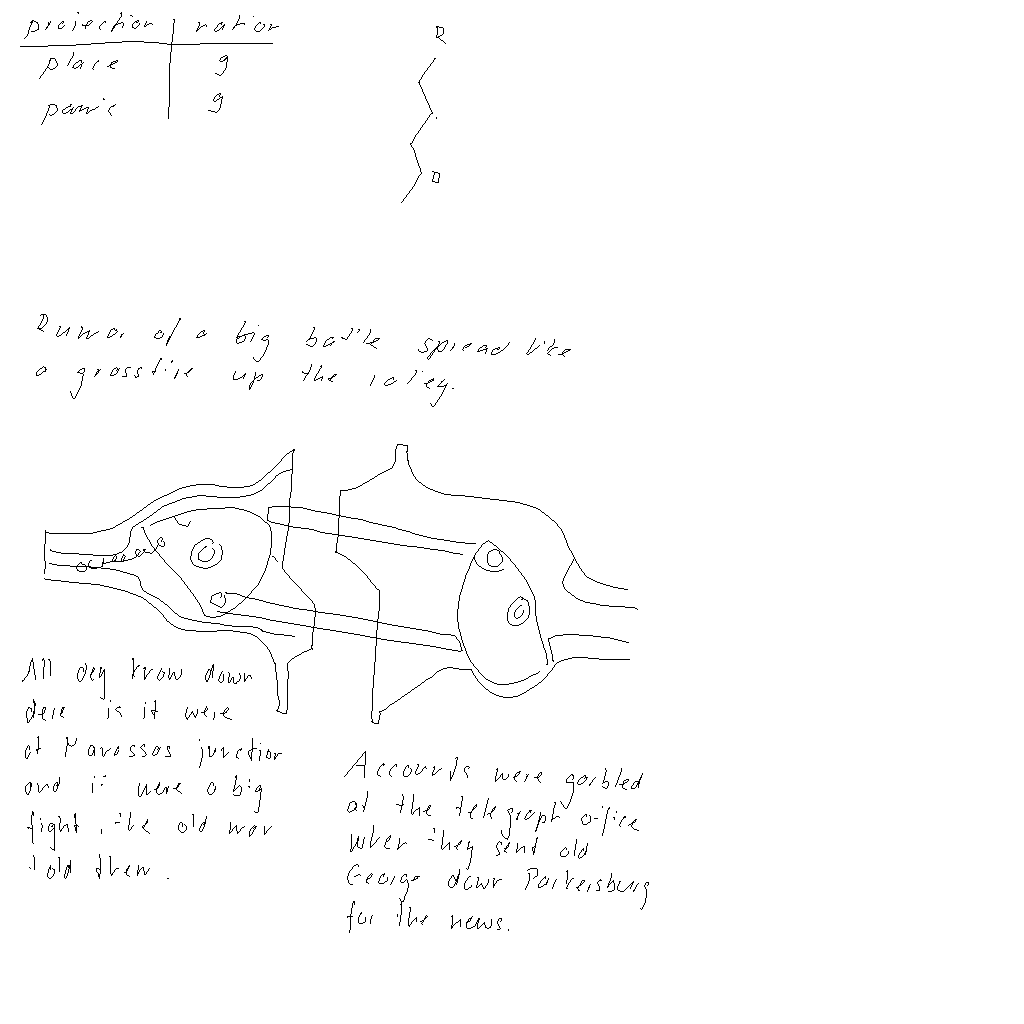 projection nation
place 9
panic 9
R
O
Rumor of a big battle spread like
a grassfire up the valley.
All dey know down
dere is it were
at Manassas junction
and it were a big
fight, the old man
told them.
Accounts were garbled
at the telegraph office
when they sent old
George down Parkersburg
for the news.